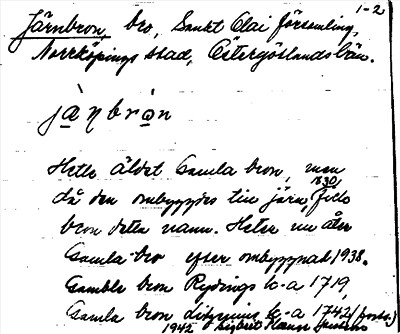 1-2
Järnbron, bro, Sankt Olai församling,
Norrköpings stad, Östergötlands län.
jà̱ṇbrò̱n
Hette äldst Gamla bron, men
då den ombyggdes till järn, 1830, fick
bron detta namn. Heter nu åter
Gamla bro efter ombyggnad 1938.
Gamble bron Rydings k-a 1719,
Gamla bron k-a 1742
1942